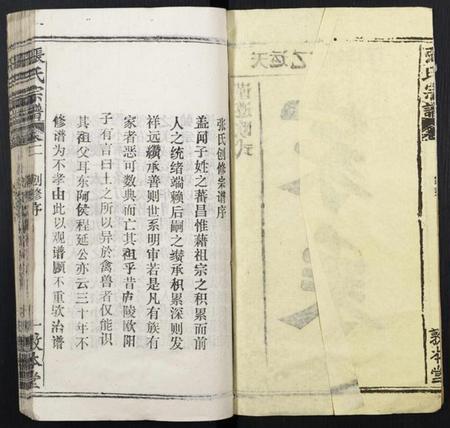 张氏创修宗谱序
盖闻子姓之蕃昌惟藉祖宗之积累而前
人之统绪端赖后嗣之缵承积累深则发
祥远缵承善则世系明审若是凡有族有
家者恶可数典而亡其祖乎昔庐陵欧阳
子有言曰士之所以异於禽兽者仅能识
其祖父耳东阿侯程延公亦云三十年不
修谱为不孝由此以观谱顾不重欤治谱
張氏宗譜
卷二
创修序
一
敦本堂
天运乙
張氏宗譜
敦本堂